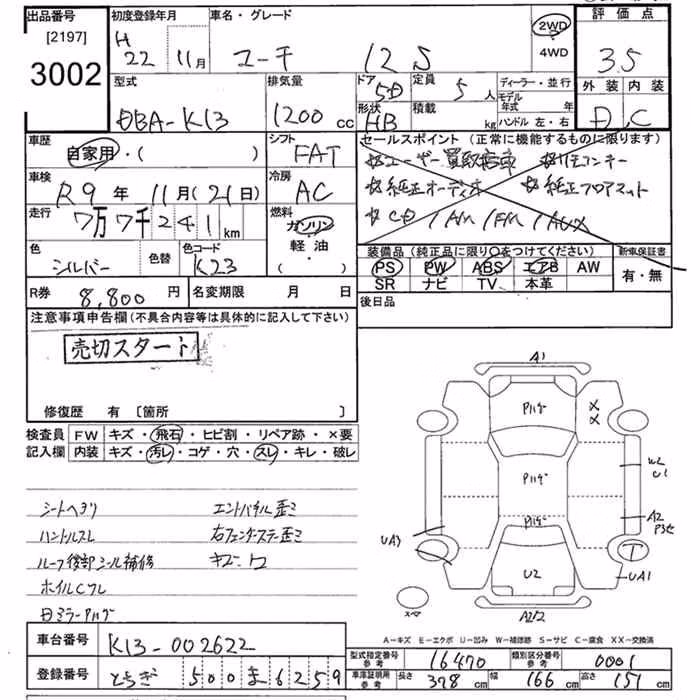 出品番号 初度登録年月 車名・グレード 2WD 評価点
[2197] H 22 11月 マーチ 12S 4WD 3.5
3002 外装 内装
型式 排気量 ドア 定員 ディーラー・並行
DBA-K13 1200 cc 5D 5人 モデル年式 年 D C
形状 積載 ハンドル 左・右
HB kg
車歴 シフト セールスポイント (正常に機能するものに限ります)
自家用・( ) FAT ユーザー買取 キー
車検 冷房 純正オーディオ 純正フロアマット
R9年 11月(21日) AC CD/AM/FM/AUX
走行 燃料
7万7千241km ガソリン
軽油
(・)
色 色替 色コード 装備品 (純正品に限り○をつけてください) 新車保証書
シルバー K23 PS PW ABS エアB AW 有・無
SR ナビ TV 本革
R券 8,800円 名変期限 月 日 後日品
注意事項申告欄 (不具合内容等は具体的に記入して下さい)
売切スタート
修復歴 有 [箇所 ]
検査員 FW キズ・飛石・ヒビ割・リペア跡・×要
記入欄 内装 キズ・汚レ・コゲ・穴・スレ・キレ・破レ
シートヘタリ エンドパネル歪ミ
ハンドルスレ 右フェンダーステー歪ミ
ルーフ後部シール補修 キズ・凹
ホイルCスレ
A1
Pハゲ
X
X
Pハゲ
W2
U1
Pハゲ
A2
UA3
U2
UA1
A2
A-キズ E-エクボ U-凹み W-補修跡 S-サビ C-腐食 XX-交換済
車台番号 K13-002622
型式指定番号 参考 16470 類別区分番号 参考 0001
登録番号 とちぎ 500 ま 6259
車庫証明用 参考 長さ 378 cm 幅 166 cm 高さ 151 cm